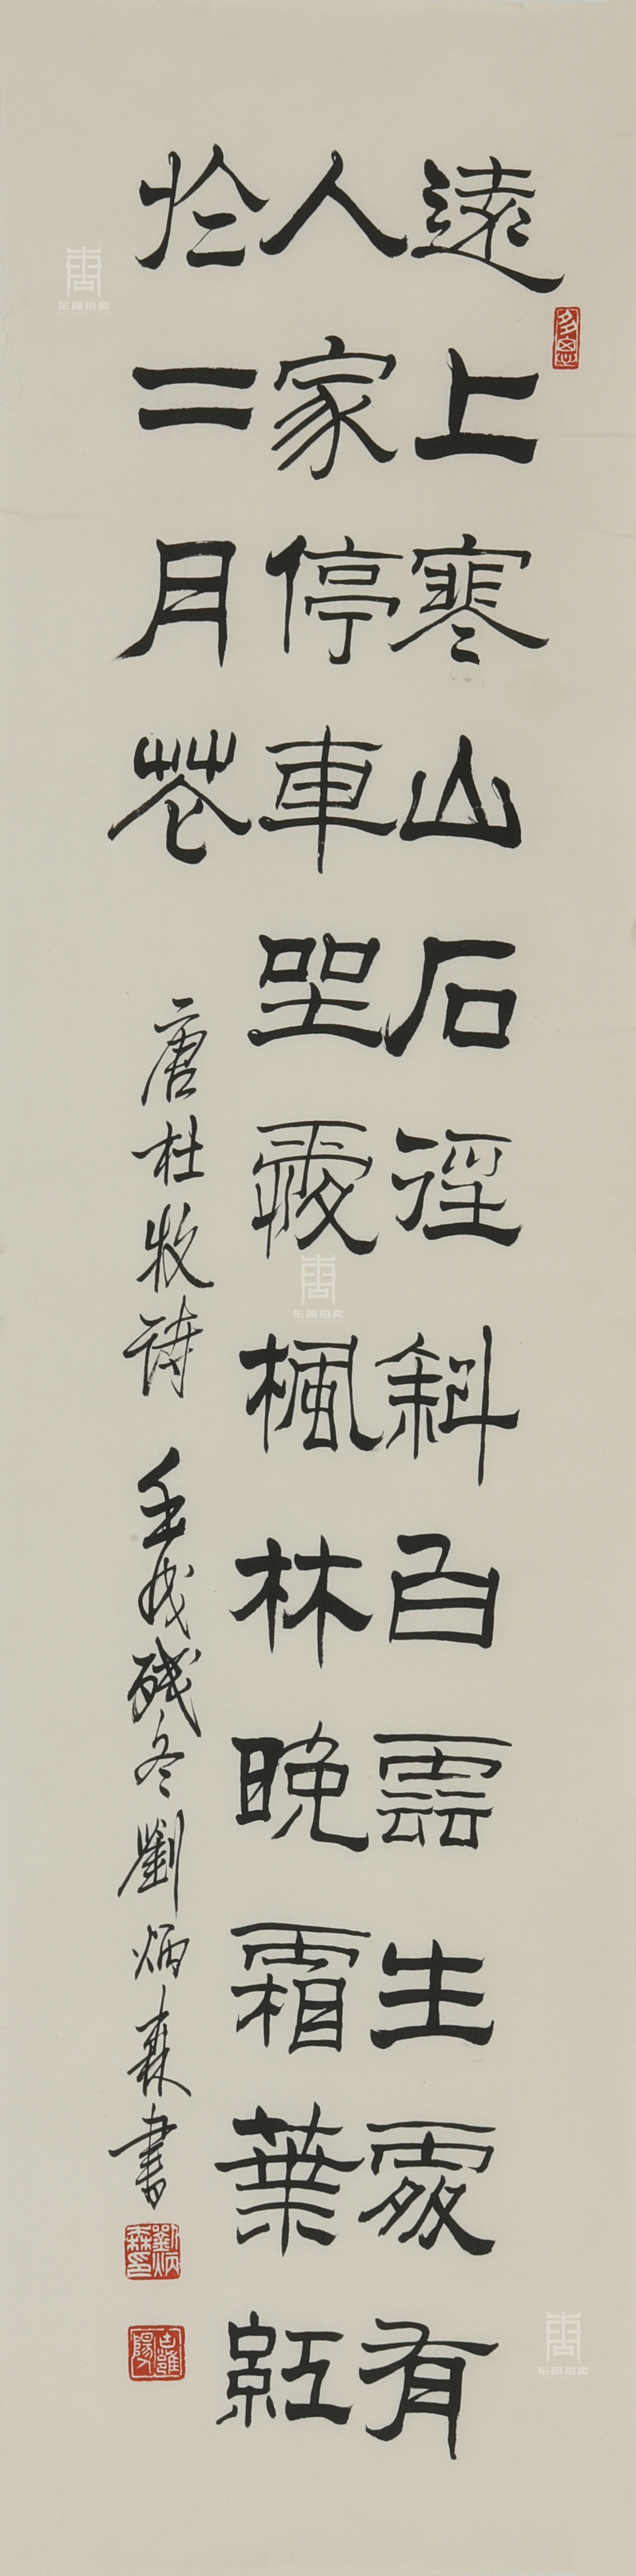 遠上寒山石徑斜白雲生處有
人家停車坐愛楓林晚霜葉紅
於二月花
唐杜牧詩 壬戌殘冬劉炳森書
劉炳森印
东周拍卖
东周拍卖
东周拍卖